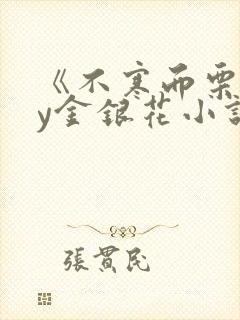 《不寒而栗
y金银花小
張貫民